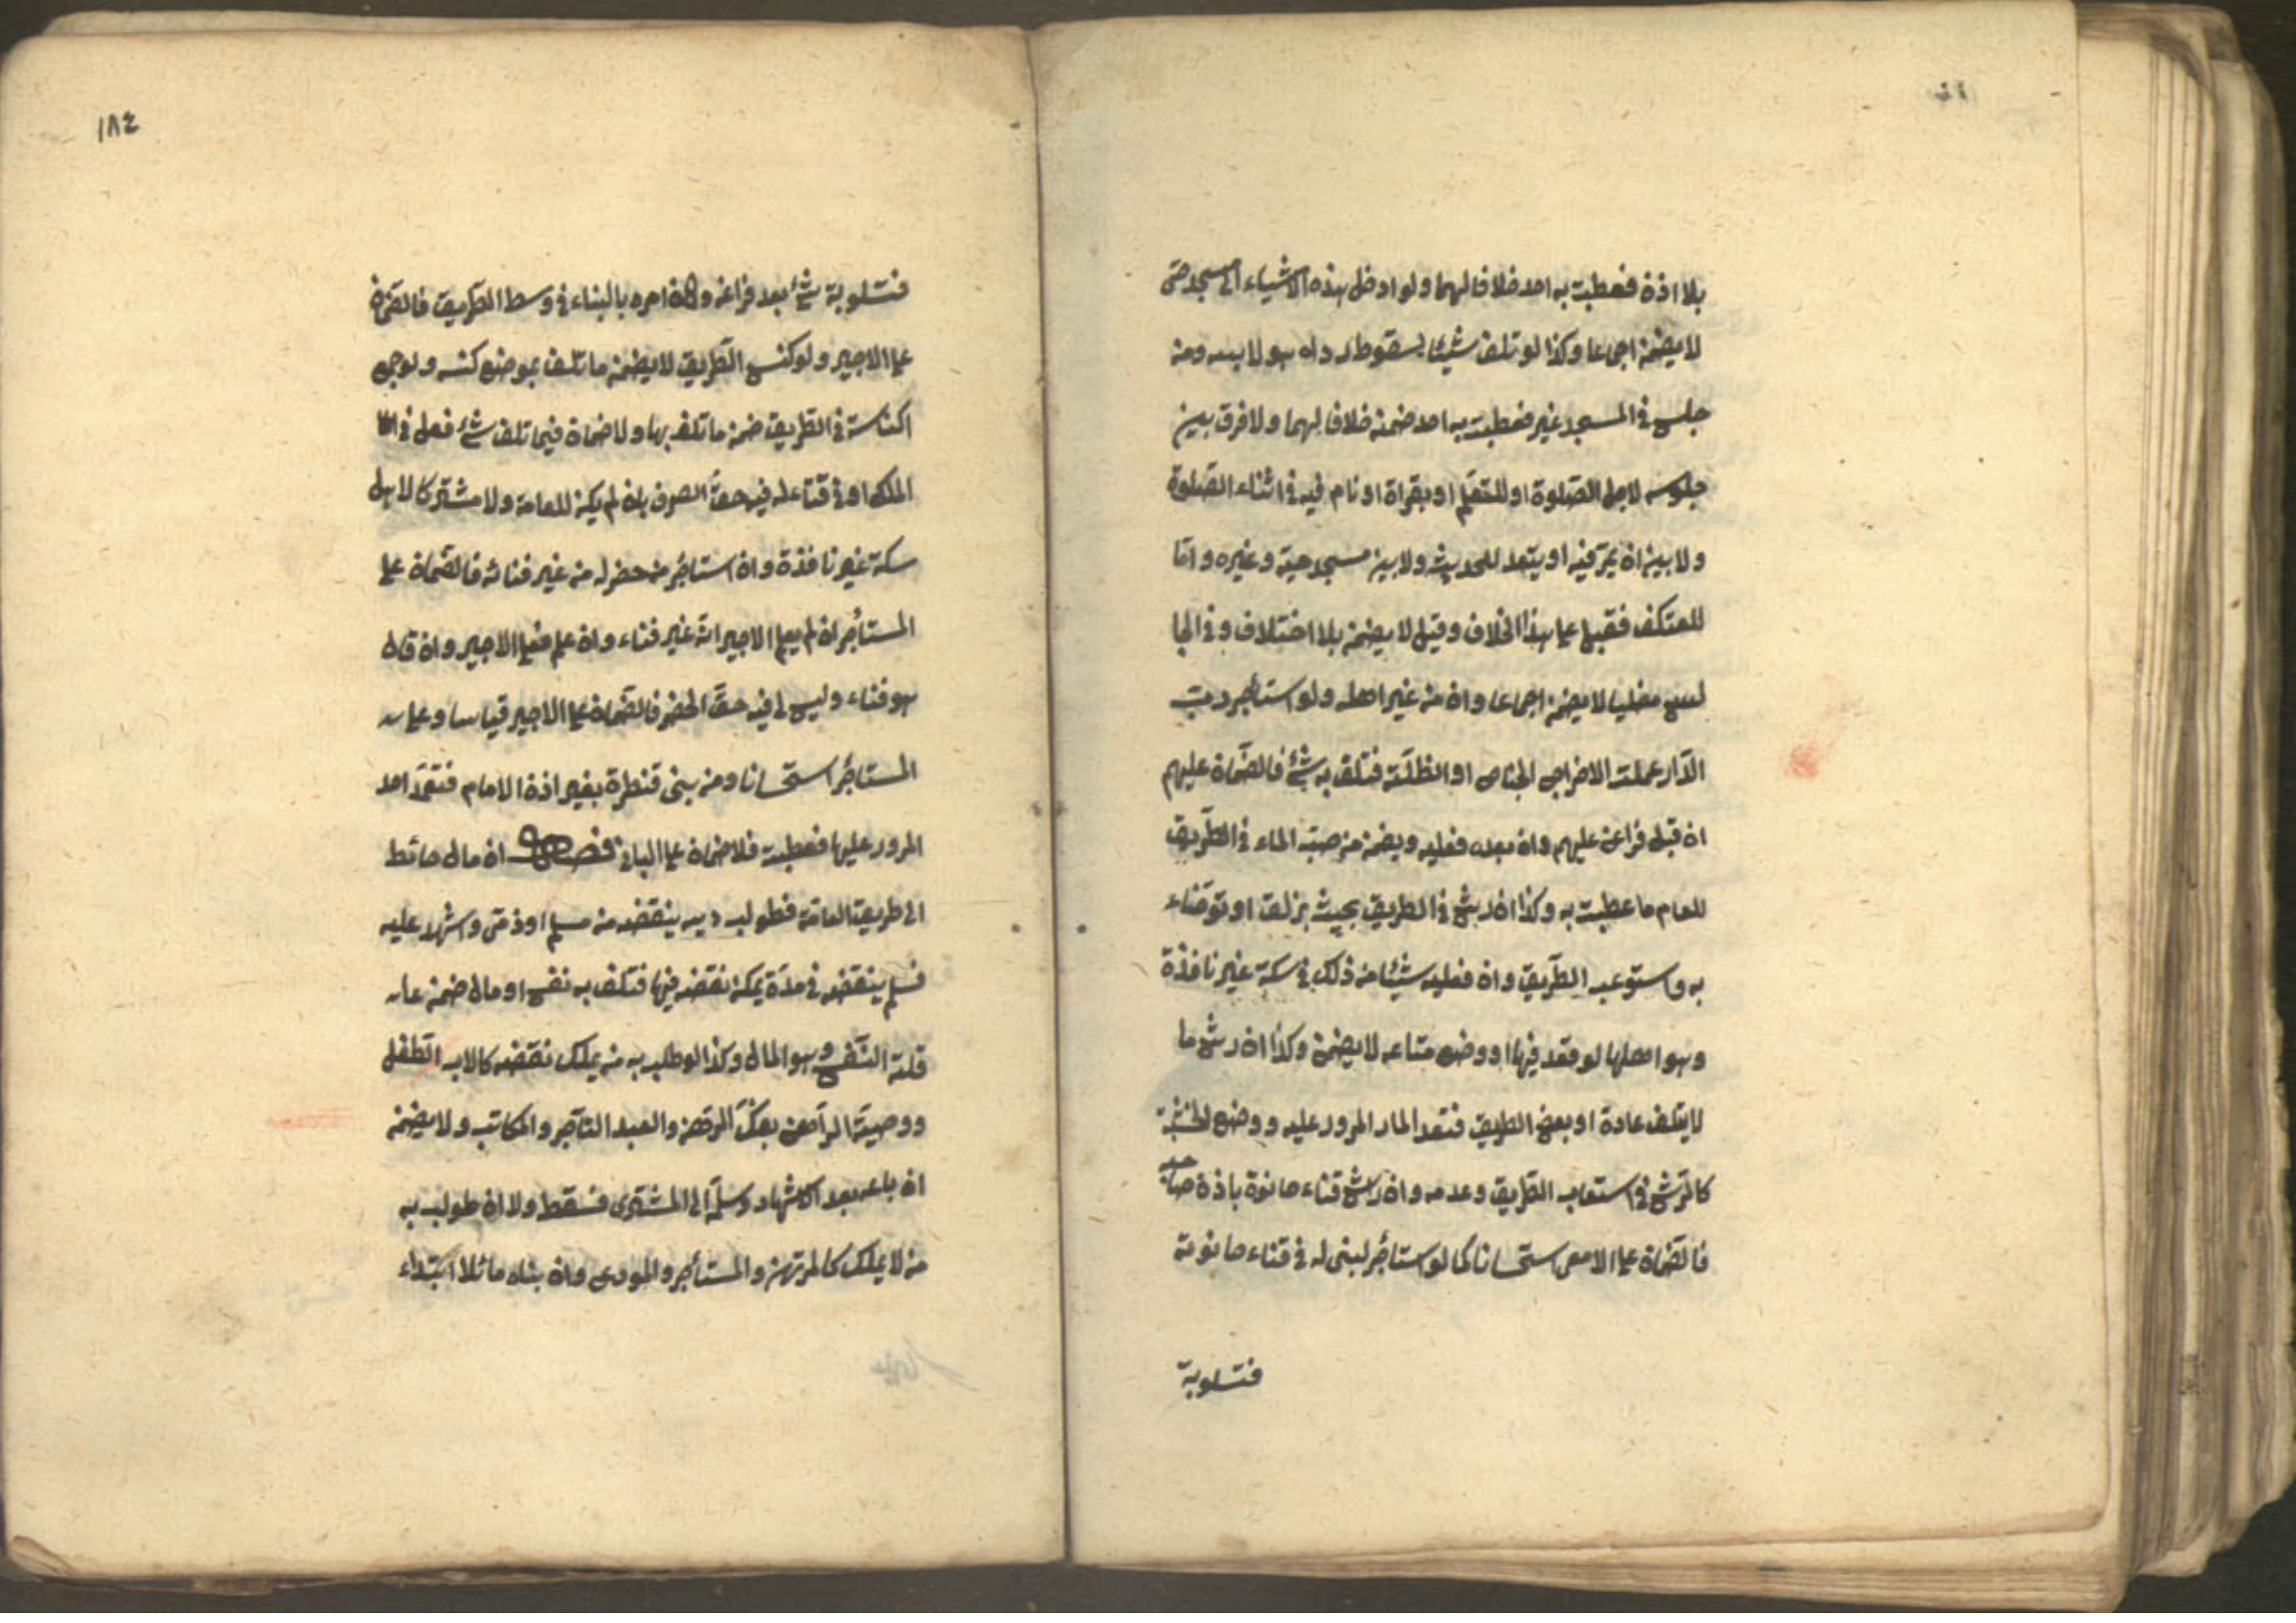 بلا اذن فعطبت به احد خلافا لهما ولو ادخل هذه الاشياء الى مسجد حتى
لا يضمن اجماعا وكذا لو تلف شيئا بسقوط رداء هو لابسه ومن
جلس في المسجد غير فعطبت به احد ضمنه خلافا لهما ولا فرق بين
جلوسه لاجل الصلوة او للتعليم او بقراة او نام فيه في اثناء الصلوة
ولا بين ان يمر فيه او يتعد للحديث ولا بين مسجد حيه وغيره واما
المعتكف فقيل على هذا الخلاف وقيل لا يضمن بلا اختلاف وفي الجا
لس مصليا لا يضمن اجماعا وان من غير اهله ولو استاجر رب
الدار عملة الاخراج الجناح او الظلة فتلف به شئ فالضمان عليهم
ان قبل فراغ عليهم وان بعده فعليه ويضمن من صب الماء في الطريق
العام ما عطبت به وكذا ان رش في الطريق بحيث يزلق او توضاء
به واستوعب الطريق وان فعليه شيئا من ذلك في سكة غير نافذة
وهو اهلها لو قعد فيها او وضع متاعه لا يضمن وكذا ان رش ما
لا يتلف عادة او بعض الطريق فتعد المار المرور عليه ووضع الخشبة
كالرش في استعاب الطريق وعدمه وان رش فناء حانوة باذن صاحبه
فالضمان على الامر استحسانا كما لو استأجر ليبنى له في فناء حانوته
فتلوبة
١٨٤
فتلوبة شئ بعد فراغه وان امره بالبناء في وسط الطريق فالضمان
على الاجير ولو كنس الطريق لا يضمن ما تلف بموضع كنسه ولو جمع
الكناسة في الطريق ضمن ما تلف بها ولا ضمان فيما تلف شئ فعل في
الملك او في فناء له فيه حق التصرف بان لم يكن للعامة ولا مشتركا لاهل
سكة غير نافذة وان استأجر من حضر له من غير فنائه فالضمان على
المستأجر ان لم يعلم الاجير انه غير فناء وان علم فعلى الاجير وان قال
هو فناء وليس لي فيه حق الحفر فالضمان على الاجير قياسا وعلى
المستاجر استحسانا ومن بنى قنطرة بغير اذن الامام فتعمد احد
المرور عليها فعطبت فلا ضمان على البانى فصل ان مال حائط
الى طريق العامة فطولب ربه بنقضه من مسلم او ذمى واشهد عليه
فلم ينقضه في مدة يمكن نقضه فيها فتلف به نفس او مال ضمن عا
قلته النفس وهو المال وكذا لو طلب به من يملك نقضه كالاب الطفل
ووصيه الراهن بفك الرهن والعبد التاجر والمكاتب ولا يضمن
ان باعه بعد الاشهاد وسلمه الى المشترى فسقط ولا ان طولب به
من لا يملك كالمرتهن والمستأجر والمودع وان بناه مائلا ابتداء